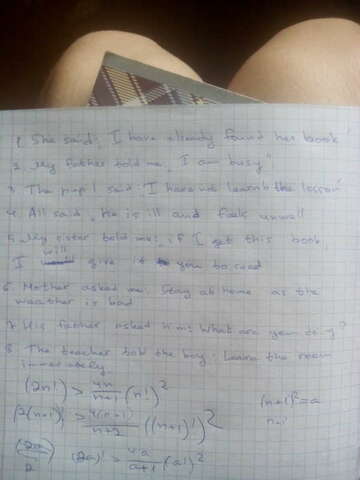 1 She said, "I have already found her book"
2. My father told me, "I am busy"
3 The pupil said "I have not learnt the lesson"
4. All said, "He is ill and feels unwell
5. My sister told me: "if I get this book
I will give it to you to read
6 Mother asked me: Stay at home as the
weather is bad
7. His father asked him: What are you
8 The teacher told the boy: Leave the room
immediately
(2n!) > 4n/n+1 (n!)²
(2(n+1)!) > 4(n+1)/n+2 ((n+1)!)²
(n+1)! = a
n+1
(2a/2) (2a)! > 4a/a+1 (a!)²